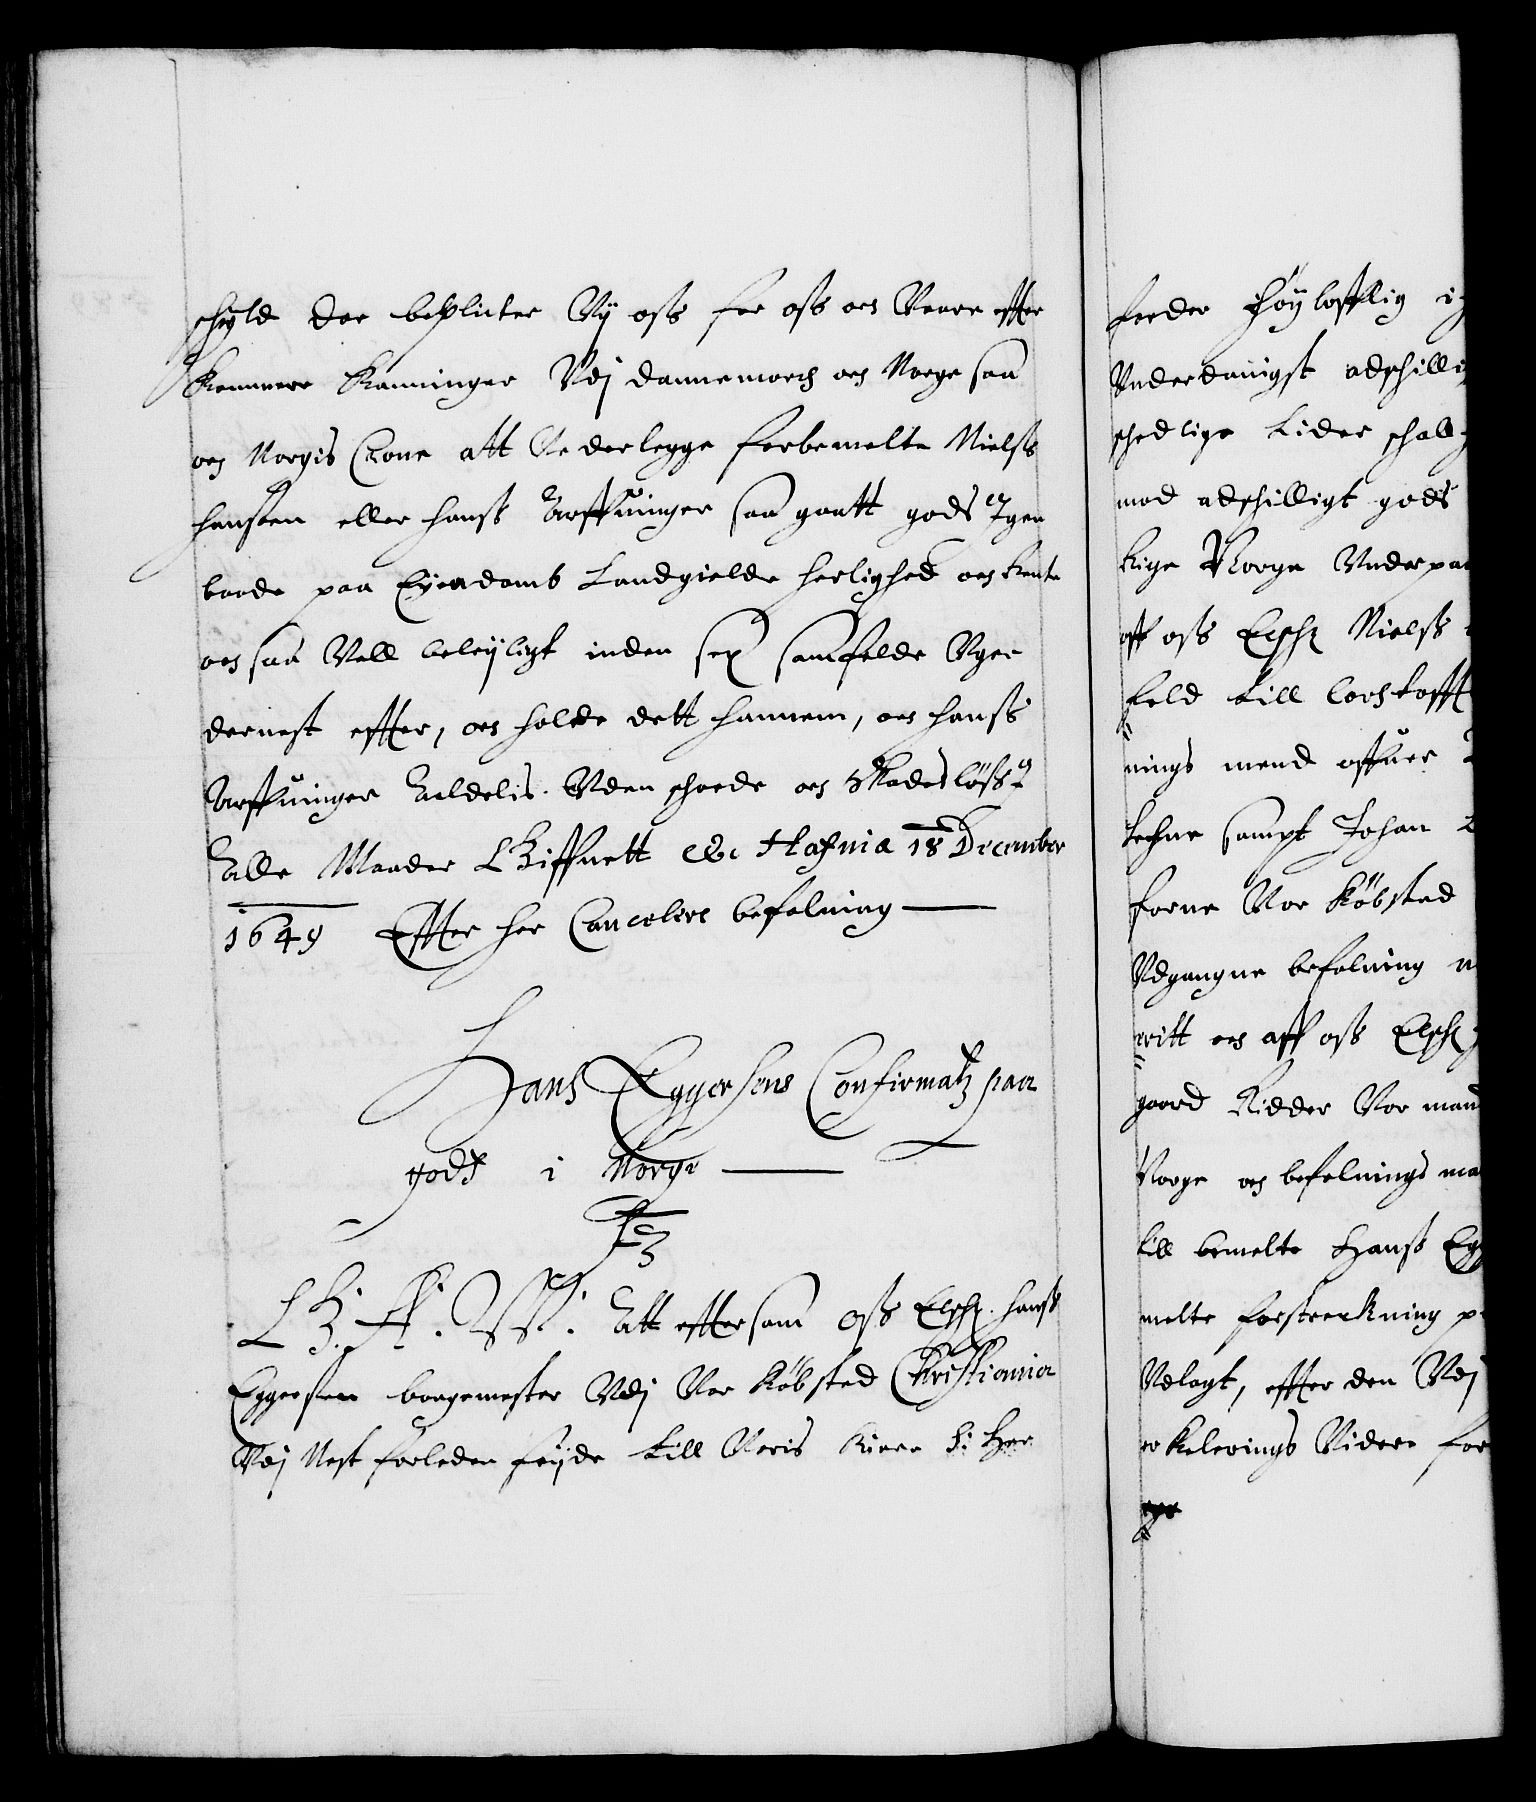 schyld da beplicter Vij oss for oss och Vaare effter
Kommere Konninger Vdj dannemarck och Norge saa
och Norgis Crone att Vederlegge forbemelte Nielss
Hanssen eller hanss Arffuinger saa gaatt gods Igen
baade paa Eyendomb Landgielde herlighed och Rente
och saa Vell beleyligt inden sex samfelde Vger
dernest effter, och holde dett hannem, och hanss
Arffuinger Aldelis Vden schaede och Skadesløss J
Alle Maader LBiffuett &c Hafnia 18 December
1649 Effter her Cancelers befalning
Hans Eggersens Confirmatz paa
gods i Norge
F3
L B. A. W. Att efftersom oss Elsch. Hanss
Eggersen borgemester Vdj Vor Kiøbsted Christiania
Vdj Nest forleden feyde till Voris Kiere h: Her
Fader Høyloflig i
Vnderdanigst adschilli
schedlige tider schall
mod adschilligt gods
Rige Norge Vnderpa
aff oss Elsch Nielss
feld till Torstofft
nings mand offuer
lehne sampt Johan
forne Vor Kiøbsted
Vdgangne befalning
ritt och aff oss Elsch
gaard Ridder Vor mand
Norge och befalnings ma
till bemelte Hanss Eg
melte forstreckning p
Vdlagt, effter den Vdj
erkelerings Videre for